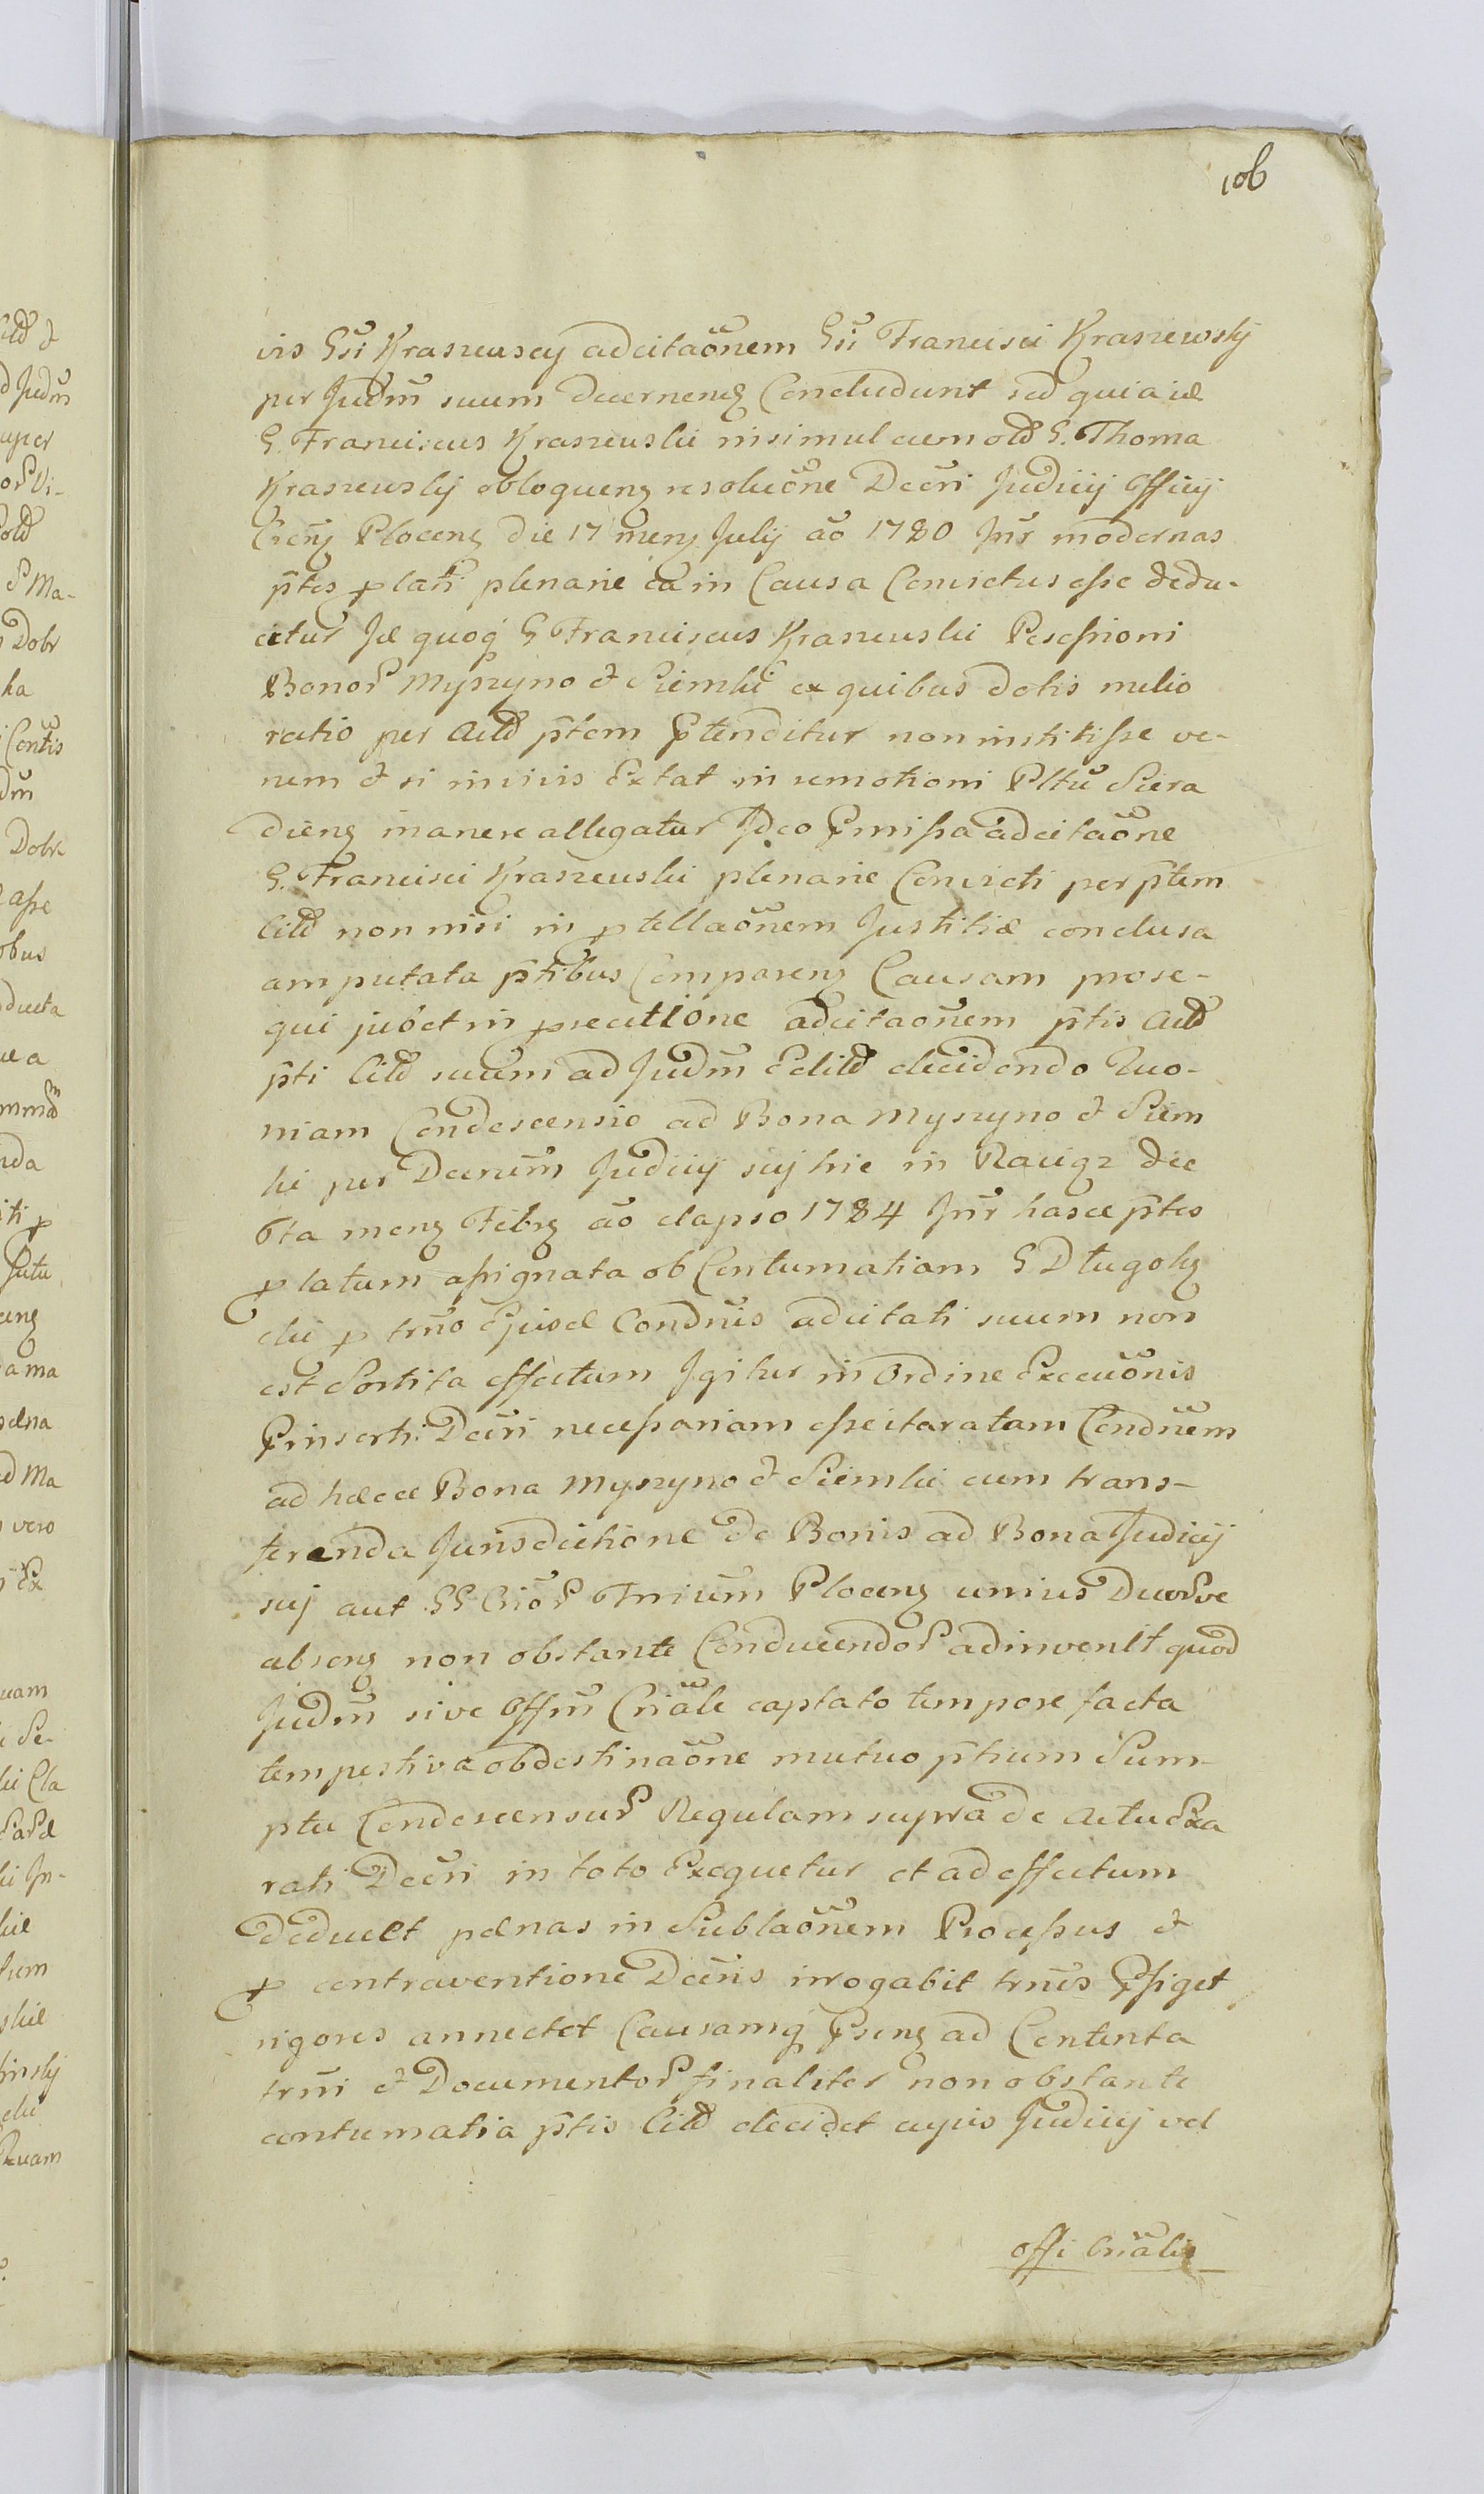 106
vis Gsi Kraszewscy adcitaõnem Gsi Francisci Kraszewsky
per Judm̃ suum decernenḍ Concludunt sed quia id
G. Franciscus Kraszewski insimul cum old G. Thoma
Kraszewskij obloquenz resolutõne Decri Judicij Officij
Crenz Plocenz die 17 menz Julij aõ 1780 Inr modernas
p̃tes p lati plenarie ea in Causa Convictus esse dedu-
citur Id quoq G Franciscus Kraszewski Posessioni
Bonor Myszyno & Siemki ex quibus dotis melio
ratio per Actd p̃tem Ptenditur non institisse ve-
nem & si in vivis Extat in remotioni Pltu Siera
dienz manere allegatur Ideo Pmissa adcitaõne
G. Francisci Kraszewski plenarie Convicti per p̃tem
Citd non nisi in p tellaõnem Justitiæ conclusa
amputata p̃tibus Comparenz Causam prose-
qui jubet in psecutione adcitaonem p̃tis Actd
p̃ti Citd suum ad Judm̃ Edild decidendo Quo-
niam Condescensio ad Bona Myszyno & Siem
ki per Decrum Judicij sui hic in Raciąz die
6ta menz Febrz aõ elapso 1784 Inr hasce p̃tes
p latum assignata ob Contumatiam G Długołę
cki p trno Ejusd Condnis adcitati suum non
est Sortita effectum Igitur in Ordine Execuõnis
Pinserti Decri necessariam esse itaratam Condnem
ad hæcce Bona Myszyno & Siemki cum trans-
ferenda Jurisdictione de Bonis ad Bona Judicij
sui aut GG Offior Trium Plocenz unius Duorve
absenz non obstante Conducendor adinvenit quod
Judm̃ sive Offm̃ Crīale captato tempore facta
tempestiva obdestinaõne mutuo p̃tium Sum-
ptu Condescensur Regulam supra de actu Exa
rati Decri in toto Exequetur et ad effectum
deducet pænas in Sublaõnem Processus &
p contraventione Decris irrogabit trnis Pfiget
rigores annectet Causamq Psenz ad Contenta
trni & Documentor finaliter non obstante
contumatia p̃tis Citd decidet cujus Judicij vel
offi Crīalis